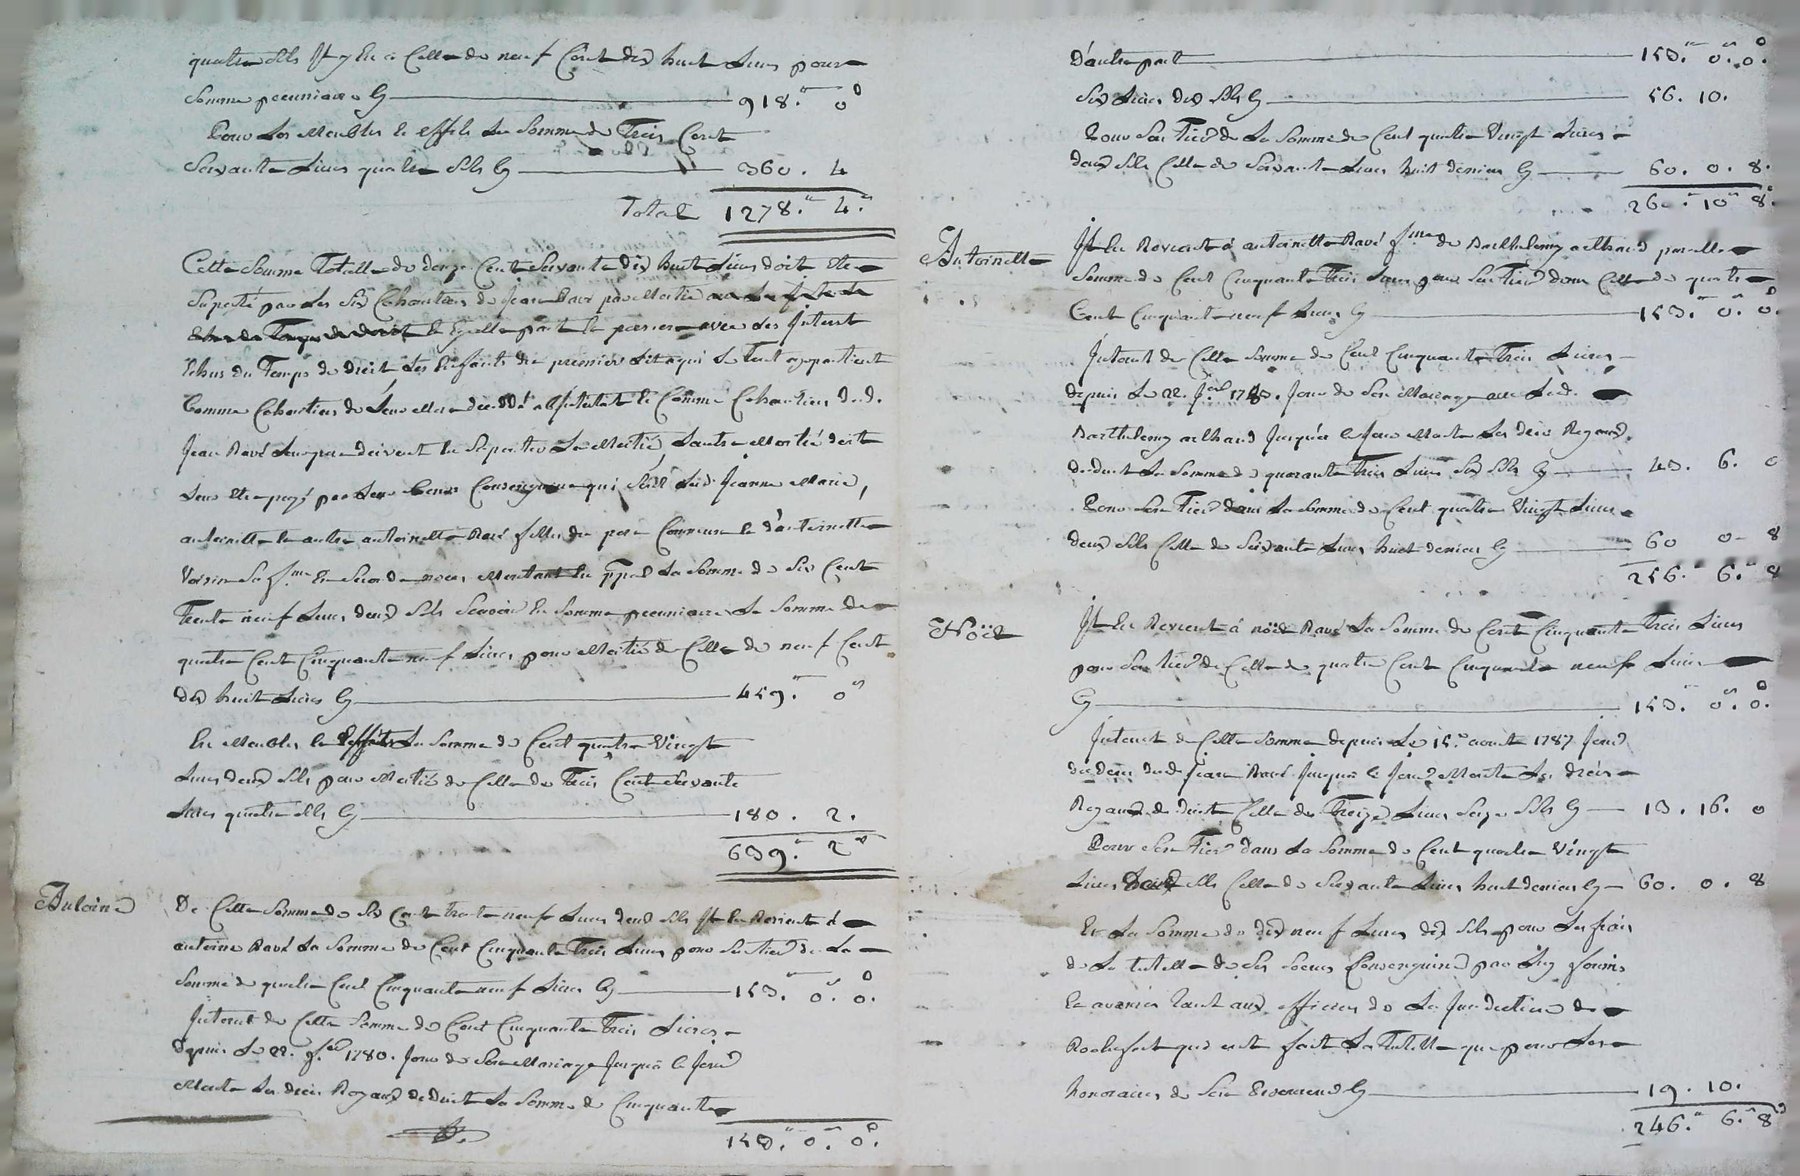 quatre sols It y En a Celle de neuf Cent dix huit Livres pour
Somme pecuniaire Cy 918.ᵗᵗ 0ˢ
Pour Les Meubles & effets La Somme de Trois Cent
Soixante Livres quatre Sols Cy 360. 4
Total 1278.ᵗᵗ 4.ˢ
Cette Somme Totalle de douze Cent Soixante dix huit Livres doit Etre
Suporté par Les Six Cohéritiers de Jean Ravé par Moitié
& Egalle part avec Les Interet
Echus du Temps de droit Les Enfants du premier Lit a qui Le Tout appartient
Comme Cohéritiers de Leur Mere & Comme Cohéritiers dud.
Jean Ravé Leur pere doivent En Suporter La Moitié, L'autre Moitié doit
Leur Etre payé par Leur Consanguins qui Sont Lad. Jeanne Marie,
antoinette & autre antoinette Ravé filles du pere Commun & d'antoinette
Voisin Sa f.ᵐᵉ En Seconde noces Montant En ppal La Somme de Six Cent
Trente neuf Livres deux Sols Scavoir En Somme pecuniaire La Somme de
quatre Cent Cinquante neuf Livres pour Moitié de Celle de neuf Cent
dix huit Livres Cy 459.ᵗᵗ 0ˢ
En Meubles & Effets La Somme de Cent quatre Vingt
Livres deux Sols pour Moitié de Celle de Trois Cent Soixante
Livres quatre Sols Cy 180. 2.
639.ᵗᵗ 2ˢ
Antoine De Cette Somme de Six Cent trente neuf Livres deux Sols It En Revient à
antoine Ravé La Somme de Cent Cinquante Trois Livres pour Son tiers de La
Somme de quatre Cent Cinquante neuf Livres Cy 153.ᵗᵗ 0.ˢ 0.ᴰ
Interet de Cette Somme de Cent Cinquante Trois Livres
depuis Le 22. 1780. Jour de Son Mariage Jusqu'à Ce Jour
Monte Les dixiè Royaux deduit La Somme de Cinquante
153.ᵗᵗ 0.ˢ 0.ᴰ
D'autre part 153.ᵗᵗ 0.ˢ 0.ᴰ
Six Livres dix Sols Cy 56. 10.
Pour Son Tiers de La Somme de Cent quatre Vingt Livres
deux Sols Celle de Soixante Livres huit deniers Cy 60. 0. 8.
260.ᵗᵗ 10ˢ 8.ᴰ
Antoinette It En Revient à antoinette Ravé f.ᵐᵉ de Barthelemy ailhaud pareille
Somme de Cent Cinquante Trois Livres pour Son Tiers dans Celle de quatre
Cent Cinquante neuf Livres Cy 153.ᵗᵗ 0.ˢ 0.ᴰ
Interet de Cette Somme de Cent Cinquante Trois Livres
depuis Le 22. Jour de Son Mariage avec Led.
Barthelemy ailhaud Jusqu'à Ce Jour Monte Les dixiè Royaux
deduit La Somme de quarante Trois Livres Six Sols Cy 43. 6. 0
Pour Son Tiers dans La Somme de Cent quatre Vingt Livres
deux Sols Celle de Soixante Livres huit deniers Cy 60 0 8
256.ᵗᵗ 6.ˢ 8
Noël It En Revient à noël Ravé La Somme de Cent Cinquante Trois Livres
pour Son tiers de Celle de quatre Cent Cinquante neuf Livres
Cy 153.ᵗᵗ 0.ˢ 0.ᴰ
Interet de Cette Somme depuis Le 15.ᵉ aoust 1787 Jour
du deces dud. Jean Ravé Jusqu'à Ce Jour Monte Les dixiè
Royaux deduits Celle de Treize Livres Seize Sols Cy 13. 16. 0
Pour Son Tiers dans La Somme de Cent quatre Vingt
Livres Deux Sols Celle de Soixante Livres huit deniers Cy 60. 0. 8
Et La Somme de dix neuf Livres dix Sols pour Les frais
de La tutelle de Ses Soeurs Consanguines par Luy fournis
Et avancés Tant aux officiers de La Juridiction de
Rochefort qui ont fait La Tutelle que pour Les
honoraires de Cy 19. 10.
246.ᵗᵗ 6.ˢ 8ᴰ